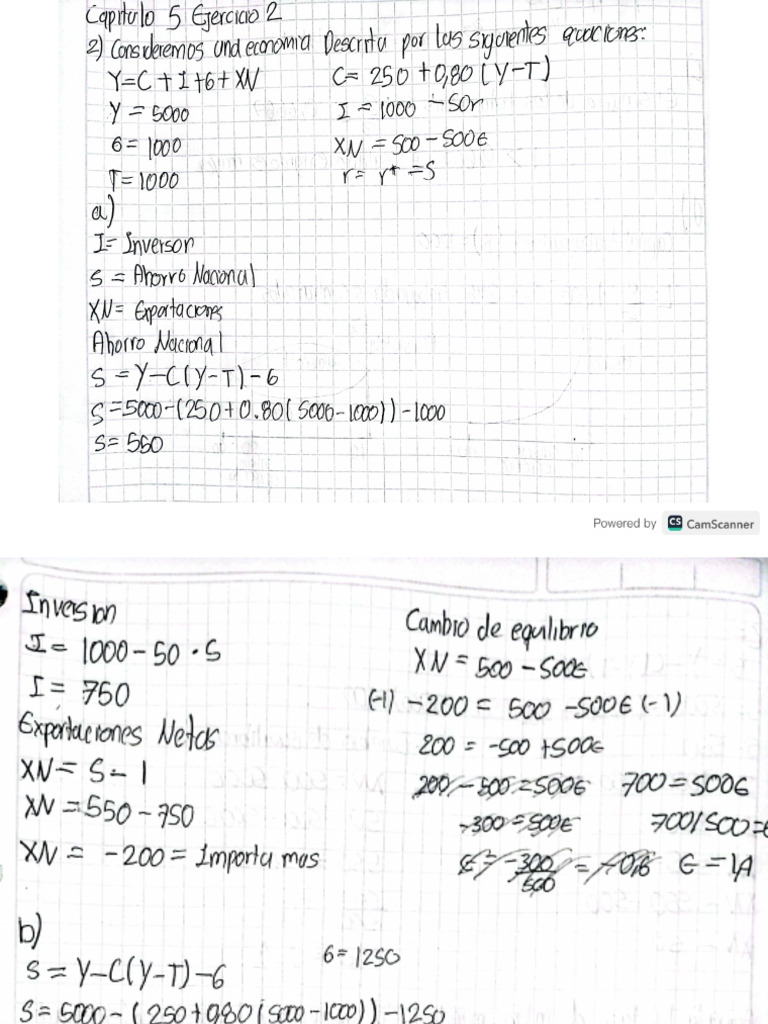 Capitulo 5 Ejercicio 2
2) Consideremos una economia Descrita por las siguientes quaciones:
Y=C+I+6+XN
C= 250 +0,80 (Y-T)
Y = 5000
I = 1000 -50r
6= 1000
XN = 500 -500€
T= 1000
r= r* =5
a)
I= Inversion
S = Ahorro Nacional
XN= Exportaciones
Ahorro Nacional
S =Y-C(Y-T)-6
S=5000-(250+0.80(5000-1000))-1000
S= 550
Powered by CS CamScanner
Inversion
I= 1000-50 · 5
I= 750
Exportaciones Netas
XN= S- I
XN =550-750
XN = -200= Importamos
Cambio de equilibrio
XN = 500 -500€
(-1) -200 = 500 -500€ (-1)
200 = -500 +500€
200 -500 =500€
700 =500€
-300 =500€
700/500=€
€ = -300/500 = -0,6
€ =1,4
b)
6= 1250
S = Y-C(Y-T)-6
S= 5000- (250+0,80(5000-1000))-1250